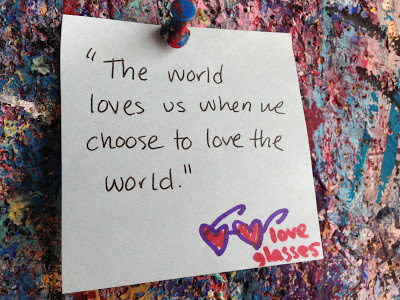 "The world
loves us when we
choose to love the
world."
love
glasses